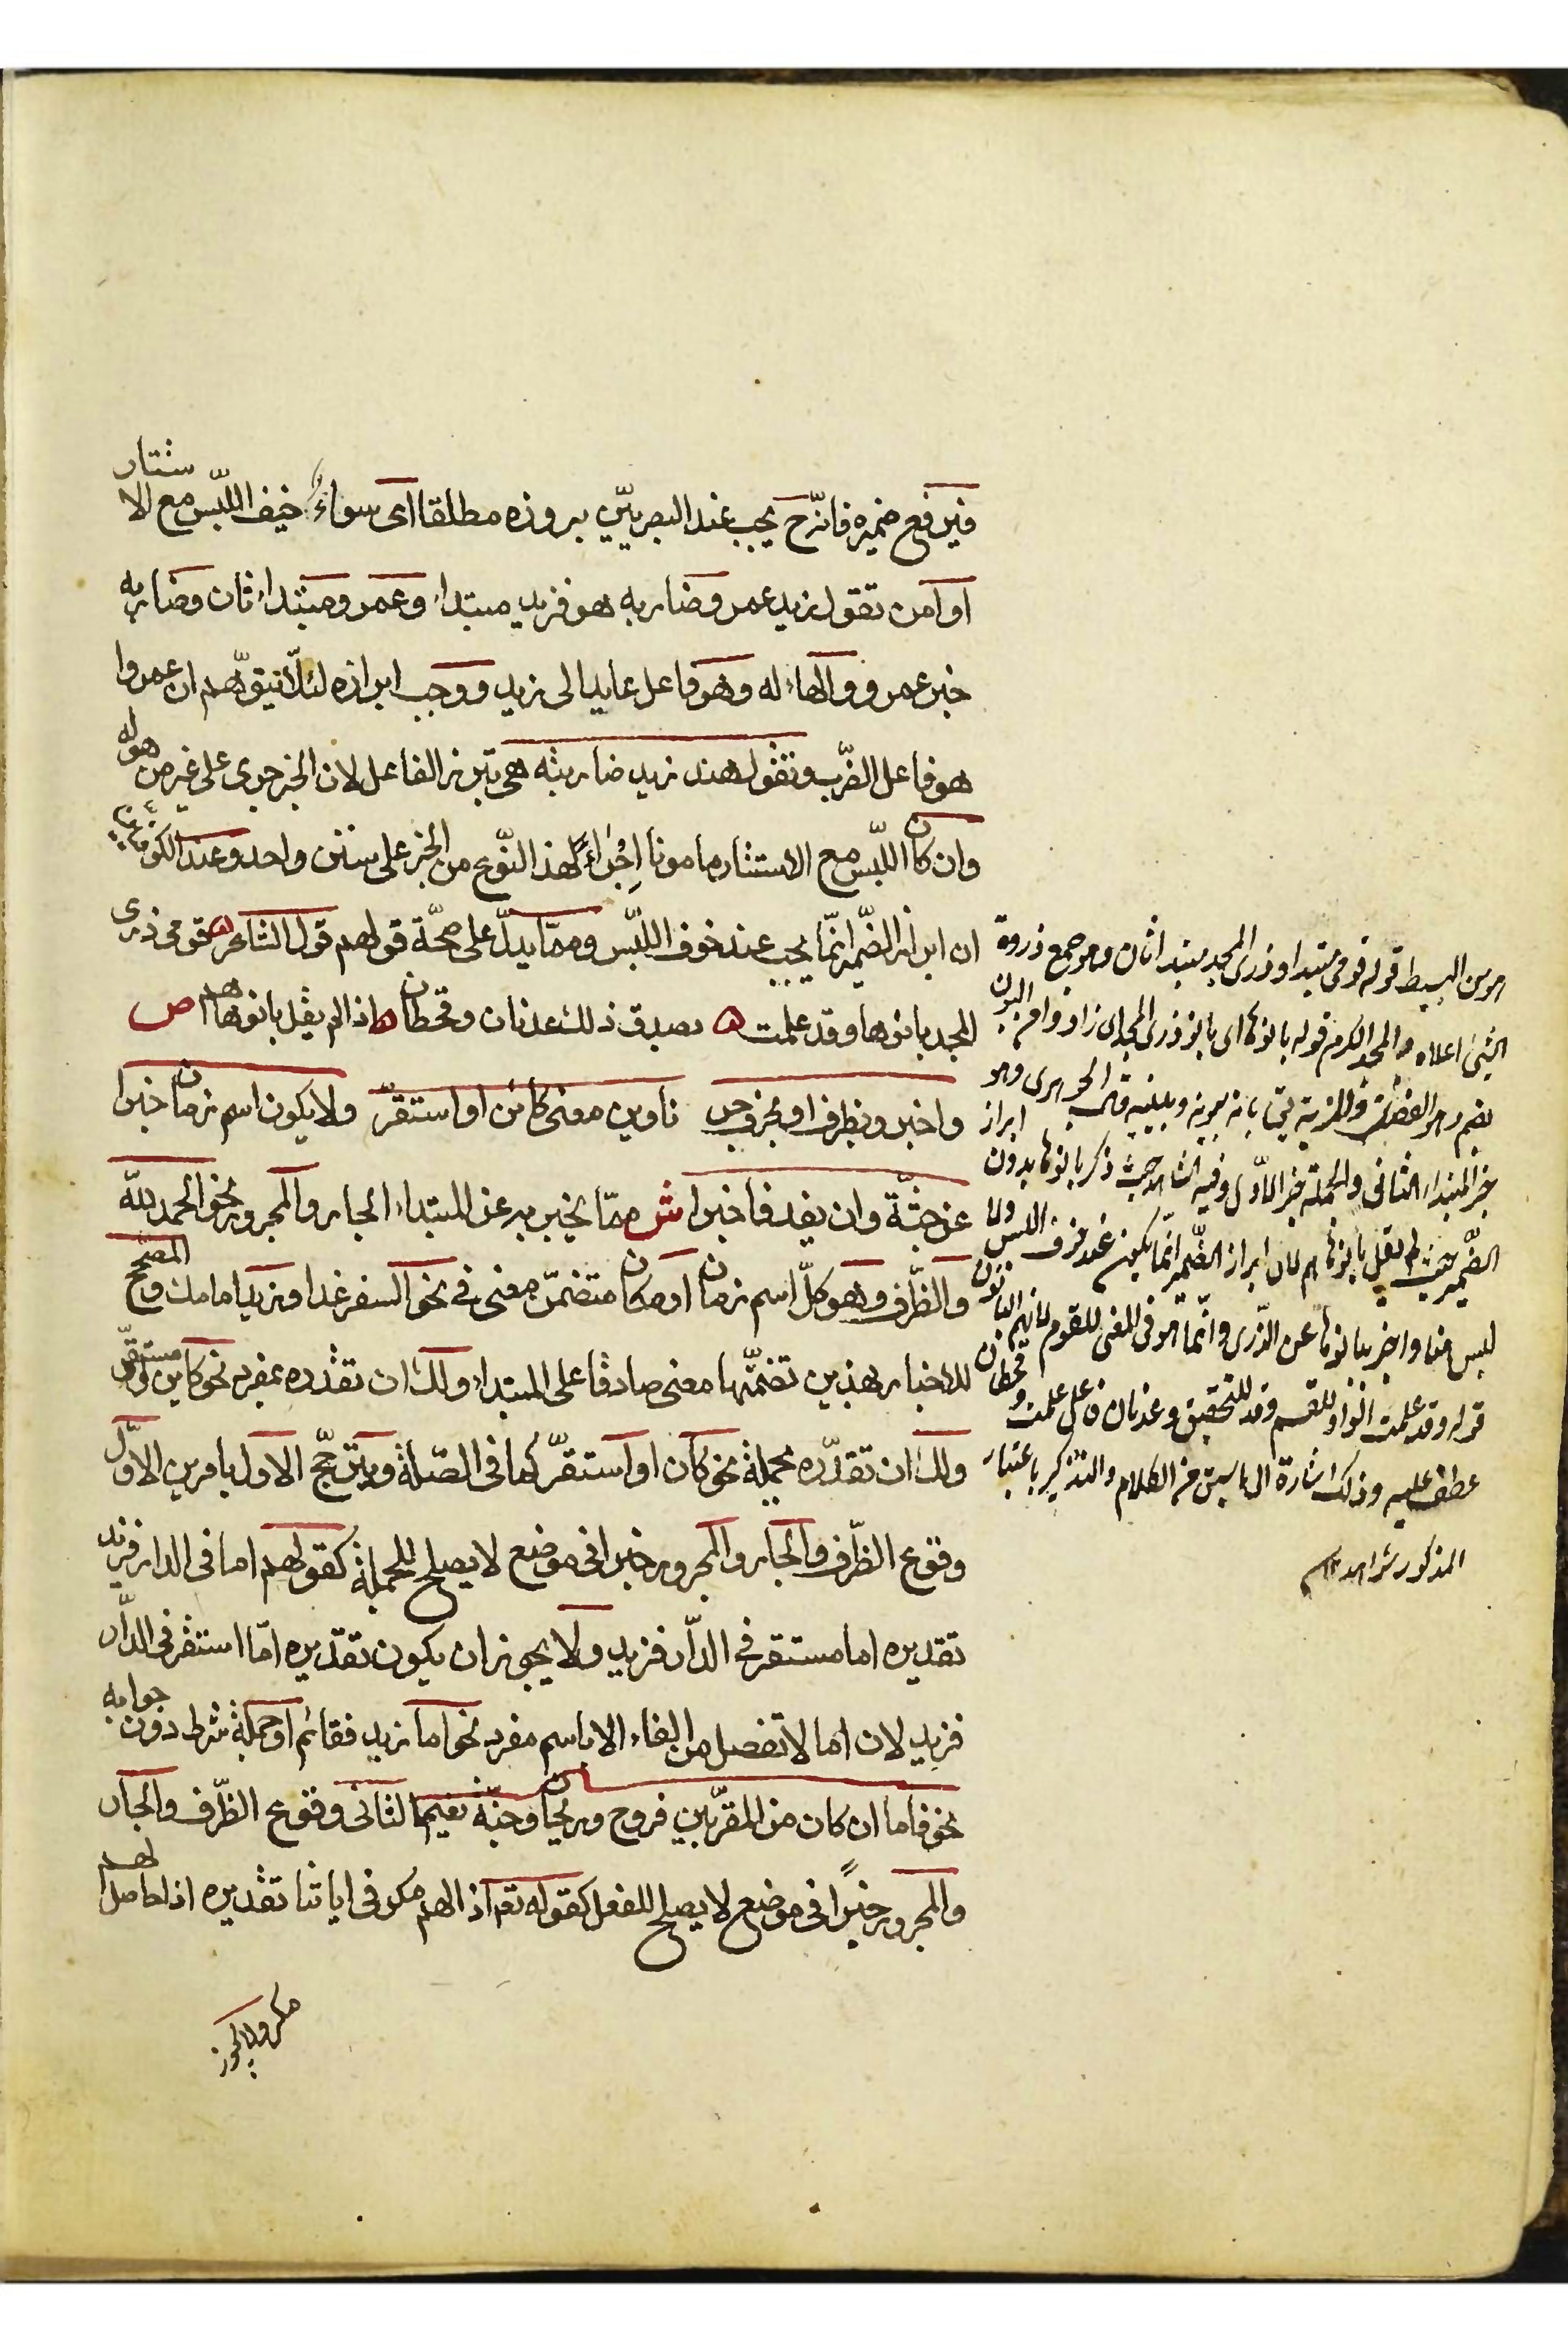 فيرفع ضميره فانه ح يجب عند البصريّين بروزه مطلقا اى سواءٌ خيف اللّبس مع الاستتار
او آمن تقول زيد عمرو ضاربه هو فزيد مبتداء وعمرو مبتداء ثان وضاربه
خبر عمرو والهاء له وهو فاعل عايد الى زيد ووجب ابرازه لئلّا تيوّهم ان عمروا
هو فاعل الضّرب وتقول هند زيد ضاربته هى تبرز الفاعل لان الخبر جرى على غير من هو له
وان كان اللّبس مع الاستتار مامونا اِجْراءً لهذ النّوع من الخبر على سنن واحد وعند الكوفيين
ان ابراز الضّمير انّما يجب عند خوف اللّبس وممّا يدلّ على صحّة قولهم قول الشاعر ه قومى ذرى
المجد بانوها وقد علمت ه بصدق ذلك عدنان وقحطان ه اذ لم يقل بانوها هم ص
واخبروا بظرف او بحرف جر ناوين معنى كائن او استقرّ ولا يكون اسم زمان خبرا
عن جثّة وان يفد فاخبرا ش ممّا يخبر به عن المبتداء الجار والمجرور نحو الحمد لله
والظّرف وهو كلّ اسم زمان او مكان متضمّن معنى فى نحو السفر غدا وزيد امامك والمصحّح
للاخبار بهذين تضمّنها معنى صادقا على المبتداء ولك ان تقدره بمفرد نحو كاين او مستقرّ
ولك ان تقدّره بجملة نحو كان او استقرّ كما فى الصّلة ويترجّح الاول بامرين الاوّل
وقوع الظّرف والجار والمجرور خبرا فى موضع لا يصلح للجملة كقولهم اما فى الدار فزيد
تقديره اما مستقر فى الدّار فزيد ولا يجوز ان يكون تقديره امّا استقر فى الدّار
فزيد لان اما لا تفصل من الفاء الا باسم مفرد نحو اما زيد فقائم او جملة شرط دون جوابه
نحو فاما ان كان من المقرّبين فروح وريحان وجنّة نعيم الثانى وقوع الظّرف والجار
والمجرور خبرًا فى موضع لا يصلح للفعل كقوله تعم اذا لهم مكر فى اياتنا تقديره اذا حاصل لهم
مكر ولا يجوز
هو من البسيط قوله قومى مبتدا وذرى المجد مبتدا ثان وهو جمع ذروة
الشئ اعلاه والمجد الكرم قوله بانوها اى بانو ذرى المجد اى زادوا من البون
خبر المبتداء الثانى والجملة خبر الاوّل وفيه الشاهد حيث ذكر بانوها بدون
الضّمير حيث لم يقل بانوها هم لان ابراز الضّمير انّما يكون عند خوف اللبس ولا
لبس هنا واخبر ببانوها عن الذّرى وانّما هو فى المعنى للقوم لانهم البانون
قوله وقد علمت الواو للقسم وقد للتحقيق وعدنان فاعل علمت وقحطان
عطف عليه وذلك اشارة الى ما سبق من الكلام والتذكير باعتبار
المذكور شواهد